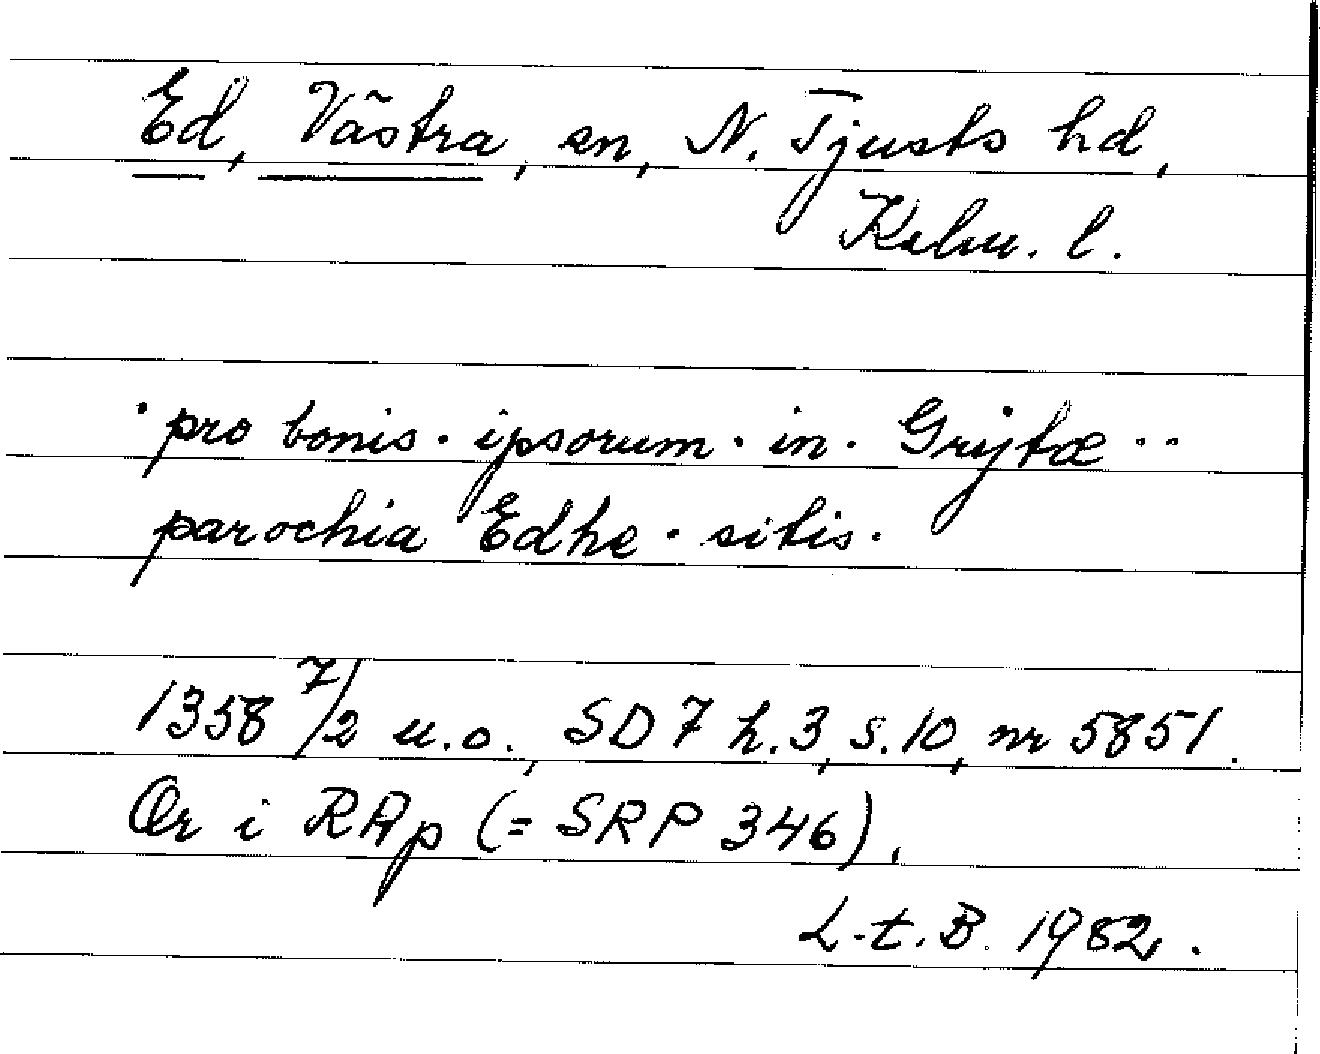 Ed, Västra, sn, N. Tjusts hd,
Kalm. l.
· pro bonis · ipsorum · in · Grytæ ··
parochia Edhe · sitis ·
1358 7/2 u.o., SD 7 h.3, s.10, nr 5851.
Or i RAp (= SRP 346).
L.t.B. 1982.